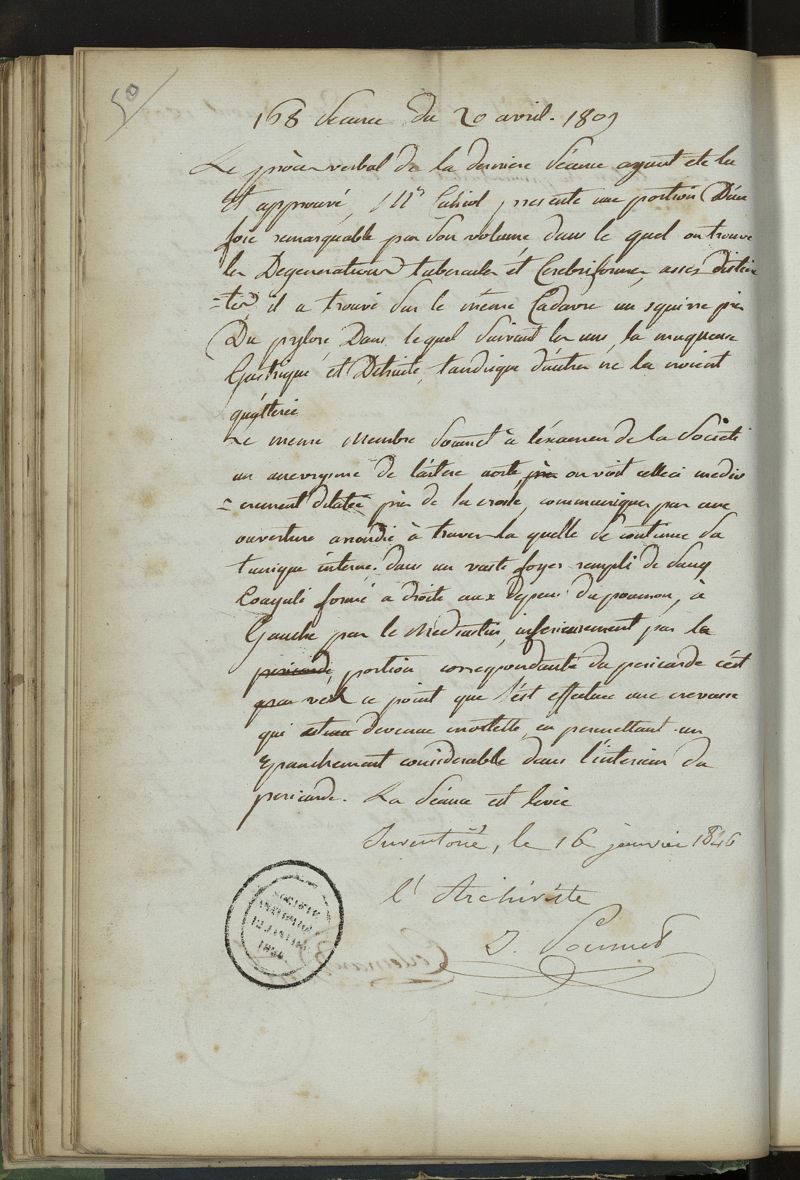 50
168 Séance du 20 avril. 1809
Le procès verbal de la derniere Séance ayant ete lu
et approuvé, Mr présente une portion D'un
foie remarquable par son volume dans le quel on trouve
les Degenerations tuberculer et Cerebriformes, assés distinc
=tes, il a trouvé sur le même Cadavre un squirre près
Du pylore, Dans lequel suivant les uns, la muqueuse
Gastrique est Detruite, tandisque d'autres ne la croient
qu'alterée
Le meme Membre soumet à l'examen de la Societé
un anevrysme de l'artere aorte, on voit celle ci medio
=crement dilatée près de la crosse, communiquer par une
ouverture arrondie à travers la quelle se continue sa
tunique interne. dans un vaste foyer rempli de sang
Coagulé formé a droite aux depens du poumon, à
Gauche par le Mediastin, inferieurement par la
pericarde, portion correspondante du pericarde c'est
vers ce point que s'est effectuee une crevasse
qui devenue mortelle, en permettant un
epanchement considerable dans l'interieur du
pericarde. La Séance est levée
Inventorié, le 16 janvier 1846
l'Archiviste
SOCIÉTÉ
ANATOMIQUE